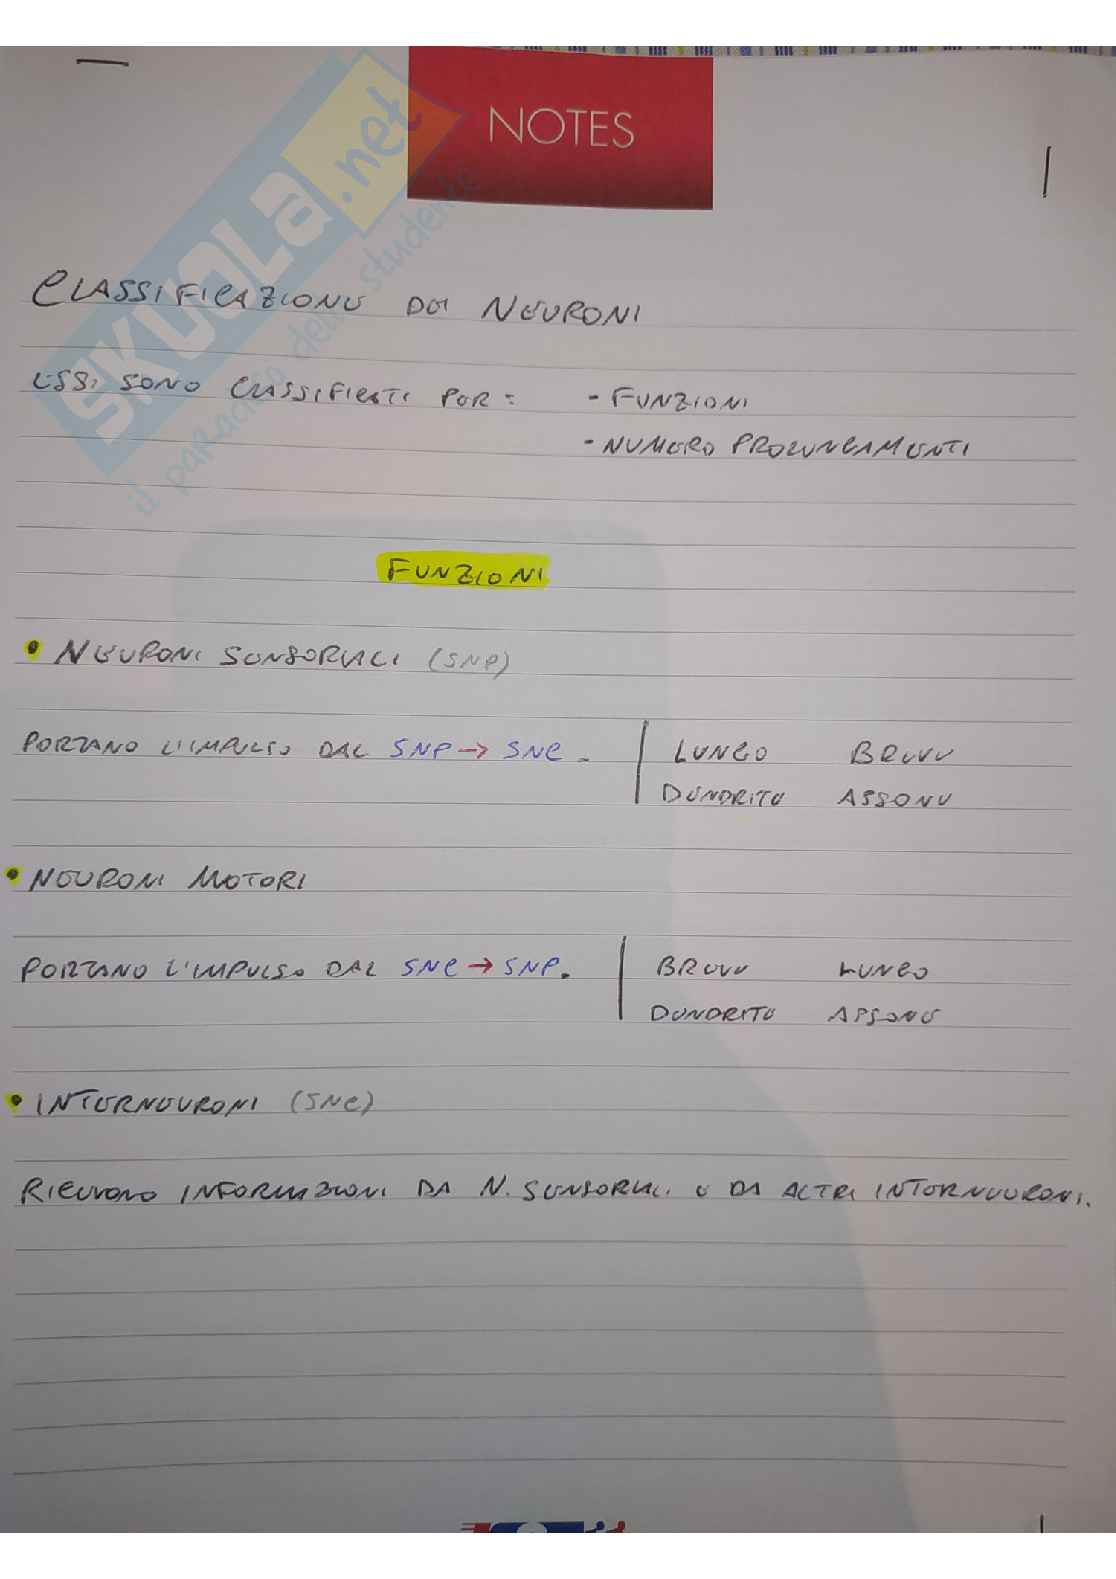 NOTES
SKUOLA.net
il paradiso dello studente
CLASSIFICAZIONE DEI NEURONI
ESSI SONO CLASSIFICATI PER: - FUNZIONI
- NUMERO PROLUNGAMENTI
FUNZIONI
• NEURONI SENSORIALI (SNP)
PORTANO L'IMPULSO DAL SNP → SNC. | LUNGO BREVE
DENDRITE ASSONE
• NEURONI MOTORI
PORTANO L'IMPULSO DAL SNC → SNP. | BREVE LUNGO
DENDRITE ASSONE
• INTERNEURONI (SNC)
RICEVONO INFORMAZIONI DA N. SENSORIALI E DA ALTRI INTERNEURONI.